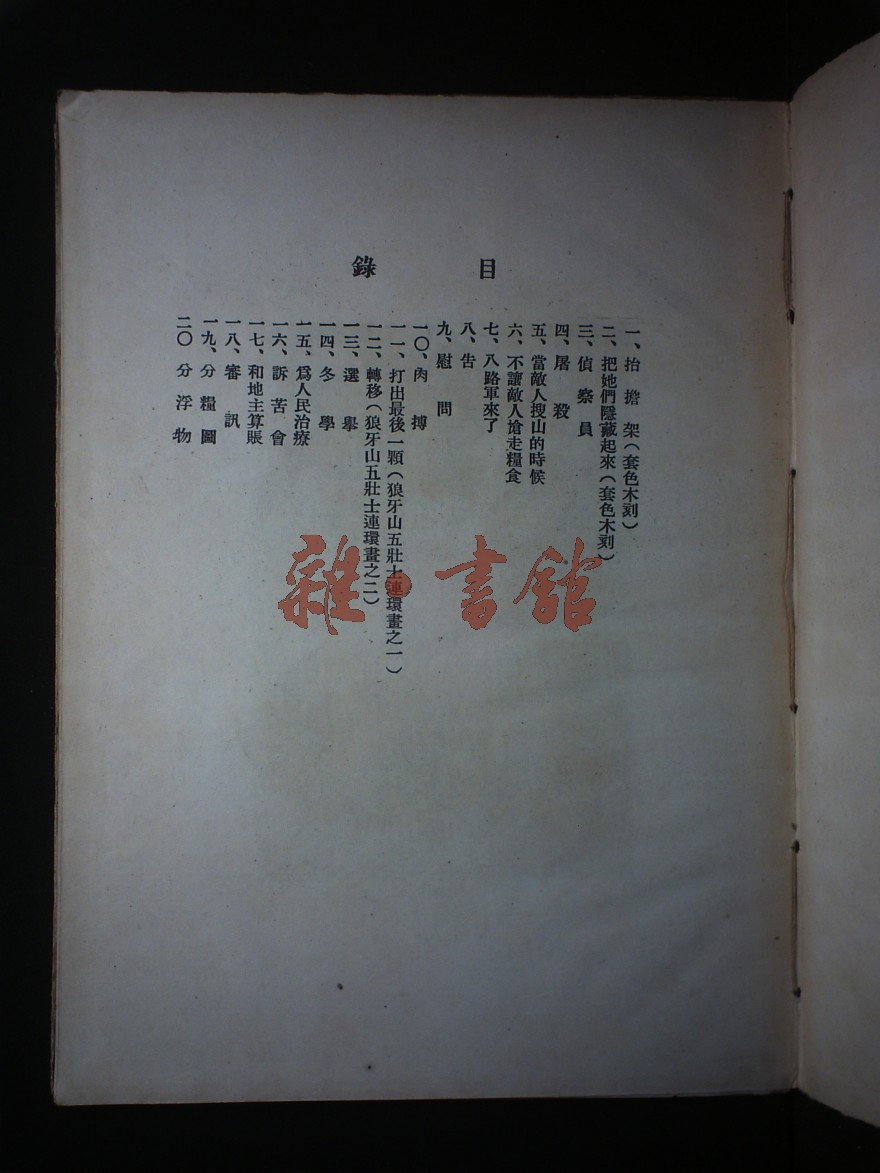 目錄
一、抬擔架(套色木刻)
二、把她們隱藏起來(套色木刻)
三、偵察員
四、屠殺
五、當敵人搜山的時候
六、不讓敵人搶走糧食
七、八路軍來了
八、告
九、慰問
一〇、肉搏
一一、打出最後一顆(狼牙山五壯士連環畫之一)
一二、轉移(狼牙山五壯士連環畫之二)
一三、選舉
一四、冬學
一五、爲人民治療
一六、訴苦會
一七、和地主算賬
一八、審訊
一九、分糧圖
二〇分浮物
雜·書館